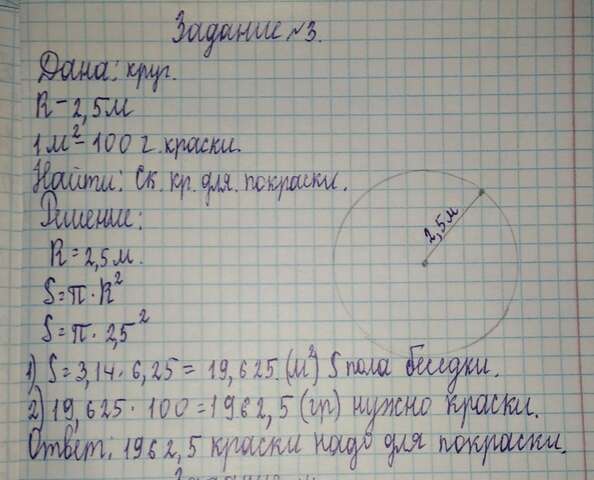 Задание №3.
Дана: круг.
R - 2,5м
1м² - 100 г. краски.
Найти: Ск. кр. для. покраски.
Решение:
R = 2,5м.
S = π · R²
S = π · 2,5²
2,5м
1) S = 3,14 · 6,25 = 19,625. (м²) S пола беседки.
2) 19,625 · 100 = 1962,5 (гр) нужно краски.
Ответ: 1962,5 краски надо для покраски.